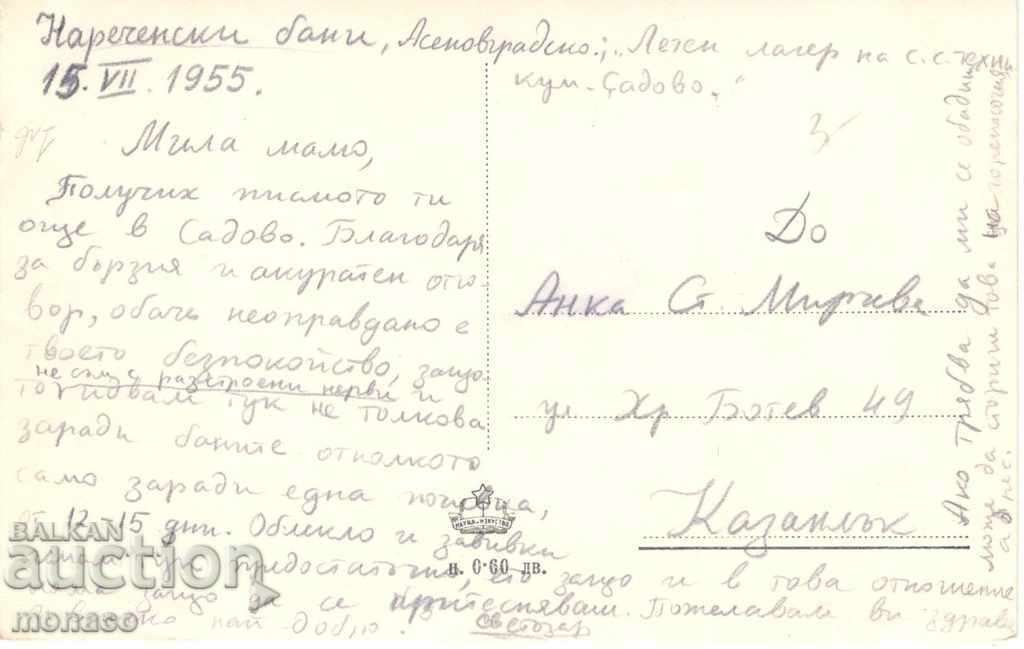 Нареченски бани, Асеновградско; „Летен лагер на с.с. техни
кум - Садово."
15.VII.1955.
Мила мамо,
Получих писмото ти
още в Садово. Благодаря
за бързия и акуратен отго-
вор, обаче неоправдано е
твоето безпокойство, защо-
не съм с разстроени нерви и
то идвам тук не толкова
заради баните отколкото
само заради една почивка,
от 12-15 дни. Облекло и завивки
имам тук предостатъчно, защо и в това отношение
няма защо да се притесняваш. Пожелавам ви здраве
и всичко най добро.
Светозар
Ако трябва да ми се обадиш
може да сториш това на горепосочения
адрес.
До
Анка Ст. Мирчева
ул. Хр Ботев 49
Казанлък
НАУКА И ИЗКУСТВО
н. 0·60 лв.
BALKAN
auction
monaco